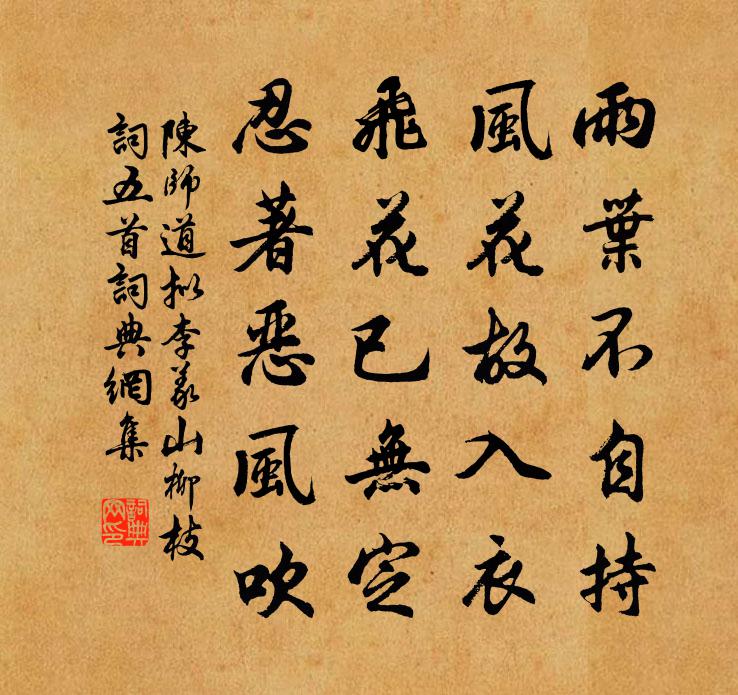 雨葉不自持
風花故入衣
飛花已無定
忍著惡風吹
陳師道拟李義山柳枝
詞五首詞典網集
詞典
网印